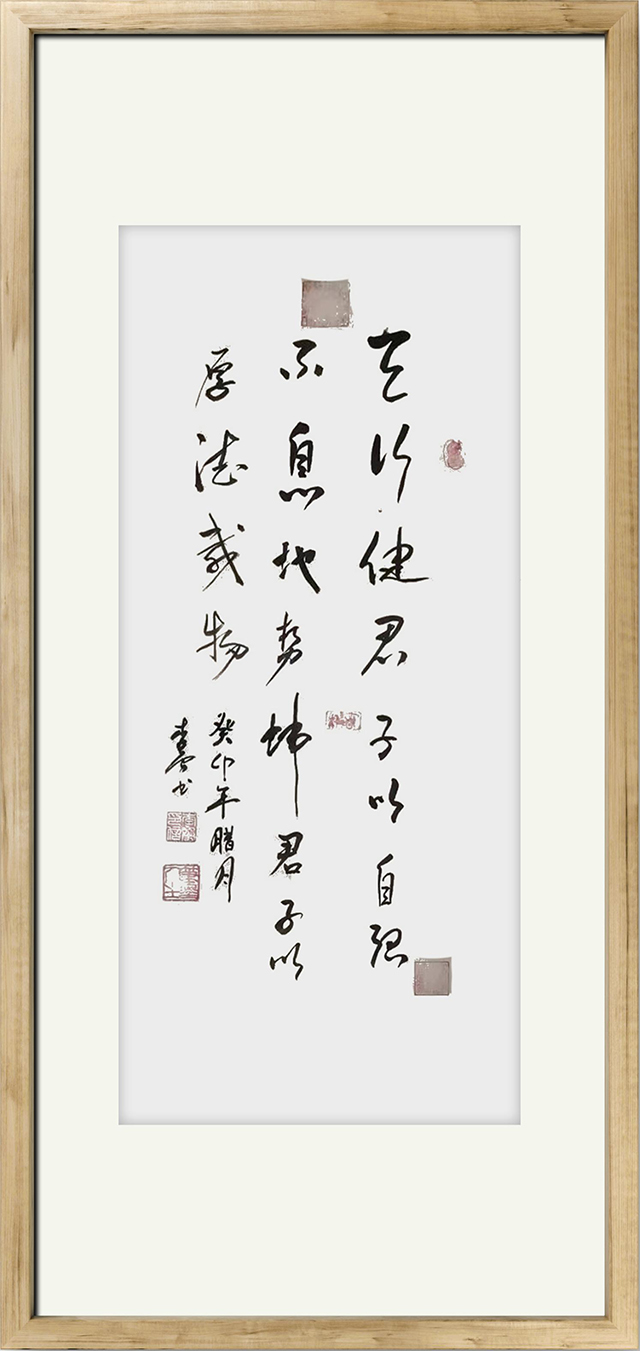 天行健君子以自强
不息地势坤君子以
厚德载物
癸卯年腊月
书